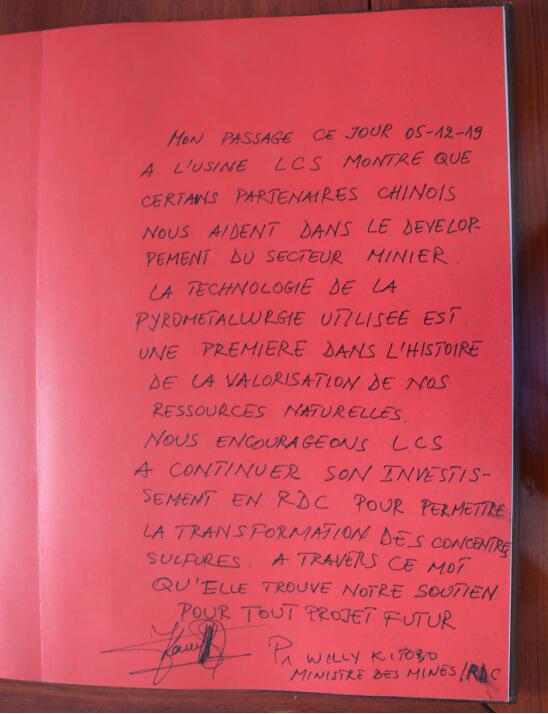 MON PASSAGE CE JOUR 05-12-19
A L'USINE LCS MONTRE QUE
CERTANS PARTENAIRES CHINOIS
NOUS AIDENT DANS LE DEVELOP-
PEMENT DU SECTEUR MINIER.
LA TECHNOLOGIE DE LA
PYROMETALLURGIE UTILISEE EST
UNE PREMIERE DANS L'HISTOIRE
DE LA VALORISATION DE NOS
RESSOURCES NATURELLES.
NOUS ENCOURAGEONS LCS
A CONTINUER SON INVESTIS-
SEMENT EN RDC POUR PERMETTRE
LA TRANSFORMATION DES CONCENTRES
SULFURES. A TRAVERS CE MOT
QU'ELLE TROUVE NOTRE SOUTIEN
POUR TOUT PROJET FUTUR
Pr WILLY KITOBO
MINISTRE DES MINES/RDC